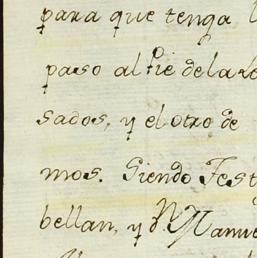 para que tenga
paso al Pie de la
sados, y el otro de
mos. Siendo Test
bellan, y D.<sup>n</sup> Manue